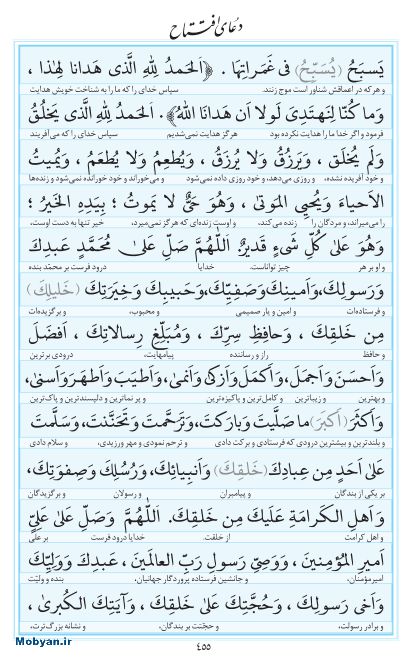 دعای افتتاح
يَسبَحُ (يُسَبِّحُ) فى غَمَراتِها . ﴿اَلحَمدُ لِلهِ الَّذى هَدانا لِهٰذا ،
و هر که در اعماقش شناور است موج زنند. سپاس خدای را که ما را به شناخت خویش هدایت
وَما كُنّا لِنَهتَدِىَ لَولا اَن هَدانَا اللهُ﴾. اَلحَمدُ لِلهِ الَّذى يَخلُقُ
فرمود و اگر خدا ما را هدایت نکرده بود هرگز هدایت نمی‌شدیم سپاس خدای را که می‌آفریند
وَلَم يُخلَق ، وَيَرزُقُ وَلا يُرزَقُ ، وَيُطعِمُ وَلا يُطعَمُ ، وَيُميتُ
و خود آفریده نشده، و روزی می‌دهد، و خود روزی داده نمی‌شود و می‌خوراند و خود خورانده نمی‌شود و زنده‌ها
الاَحياءَ وَيُحيِى المَوتىٰ ، وَهُوَ حَىٌّ لا يَموتُ ؛ بِيَدِهِ الخَيرُ ؛
را می‌میراند، و مردگان را زنده می‌کند، و اوست زنده‌ای که هرگز نمی‌میرد، خیر تنها به دست اوست،
وَهُوَ عَلىٰ كُلِّ شَىءٍ قَديرٌ. اَللّٰهُمَّ صَلِّ عَلىٰ مُحَمَّدٍ عَبدِكَ
و او بر هر چیز تواناست. خدایا درود فرست بر محمّد بنده
وَرَسولِكَ، وَاَمينِكَ وَصَفِيِّكَ، وَحَبيبِكَ وَخِيَرَتِكَ (خَليلِكَ)
و فرستاده‌ات و امین و یار صمیمی و محبوب، و برگزیده‌ات
مِن خَلقِكَ ، وَحافِظِ سِرِّكَ ، وَمُبَلِّغِ رِسالاتِكَ ، اَفضَلَ
و حافظ راز و رساننده پیامهایت، درودی برترین
وَاَحسَنَ وَاَجمَلَ، وَاَكمَلَ وَاَزكىٰ وَاَنمىٰ، وَاَطيَبَ وَاَطهَرَ وَاَسنىٰ،
و بهترین و زیباترین و کامل‌ترین و پاکیزه‌ترین و پر نماترین و دلپسندترین و پاک‌ترین
وَاَكثَرَ (اَكبَرَ) ما صَلَّيتَ وَبارَكتَ، وَتَرَحَّمتَ وَتَحَنَّنتَ، وَسَلَّمتَ
و بلندترین و بیشترین درودی که فرستادی و برکت دادی و ترحم نمودی و مهر ورزیدی، و سلام دادی
عَلىٰ اَحَدٍ مِن عِبادِكَ (خَلقِكَ) وَاَنبِيائِكَ، وَرُسُلِكَ وَصِفوَتِكَ،
بر یکی از بندگان و پیامبران و رسولان و برگزیدگان
وَاَهلِ الكَرامَةِ عَلَيكَ مِن خَلقِكَ. اَللّٰهُمَّ وَصَلِّ عَلىٰ عَلِىٍّ
و اهل کرامت از خلقت. خدایا درود فرست بر علی
اَميرِ المُؤمِنينَ ، وَوَصِىِّ رَسولِ رَبِّ العالَمينَ ، عَبدِكَ وَوَلِيِّكَ
امیرمؤمنان، و جانشین فرستاده پروردگار جهانیان، بنده و ولیّت
وَاَخى رَسولِكَ، وَحُجَّتِكَ عَلىٰ خَلقِكَ، وَآيَتِكَ الكُبرىٰ ،
و برادر رسولت، و حجّتت بر بندگان، و نشانه بزرگ‌ترت،
٤٥٥
Mobyan.ir